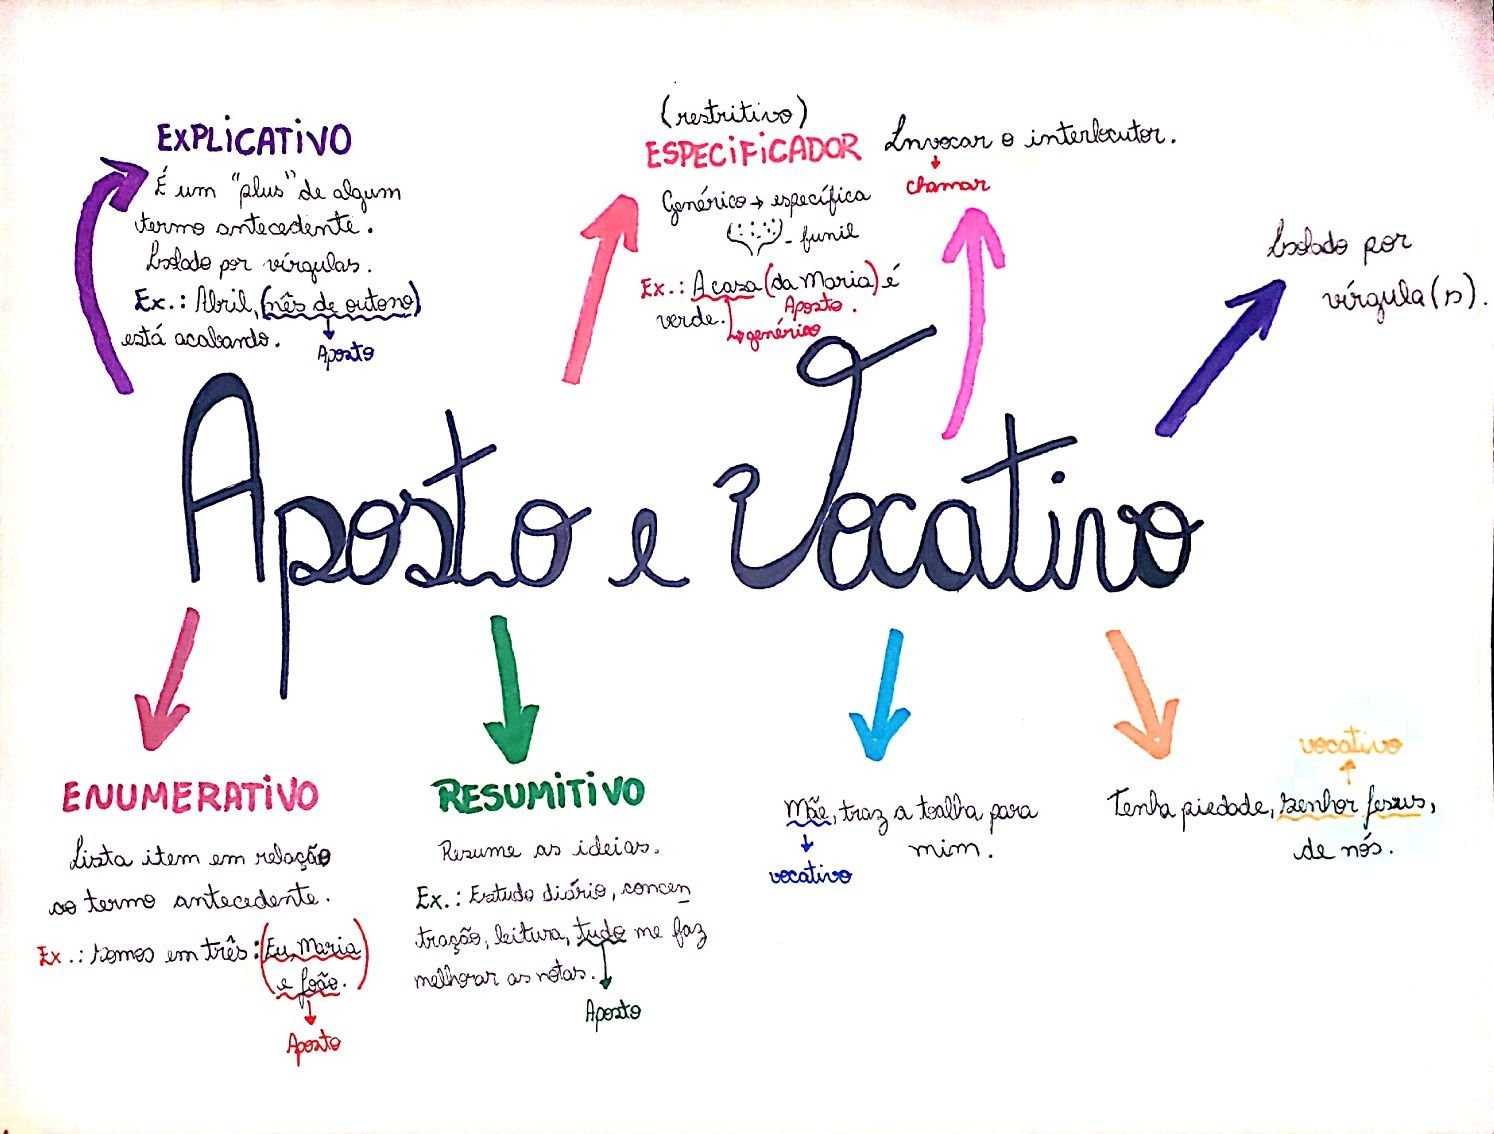 EXPLICATIVO
É um "plus" de algum
termo antecedente.
Isolado por vírgulas.
Ex.: Abril, (mês de outono)
está acabando.
Aposto
(restritivo)
ESPECIFICADOR
Genérico → específica
- funil
Ex.: A casa (da Maria) é
Aposto.
verde.
→ genérico
Invocar o interlocutor.
chamar
Isolado por
vírgula(s).
Aposto e Vocativo
ENUMERATIVO
Lista item em relação
ao termo antecedente.
Ex.: Somos em três: (Eu, Maria
e João.)
Aposto
RESUMITIVO
Resume as ideias.
Ex.: Estudo diário, concen
tração, leitura, tudo me faz
melhorar as notas.
Aposto
Mãe, traz a toalha para
mim.
vocativo
vocativo
Tenha piedade, Senhor Jesus,
de nós.